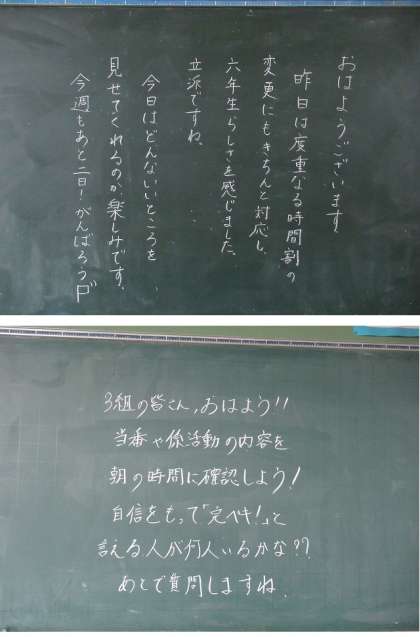 おはようございます。
昨日は度重なる時間割の
変更にもきちんと対応し、
六年生らしさを感じました。
立派ですね。
今日はどんないいところを
見せてくれるのか楽しみです。
今週もあと二日!がんばろう
3組の皆さん、おはよう!!
当番や係活動の内容を
朝の時間に確認しよう!
自信をもって「完ペキ!」と
言える人が何人いるかな??
あとで質問しますね。